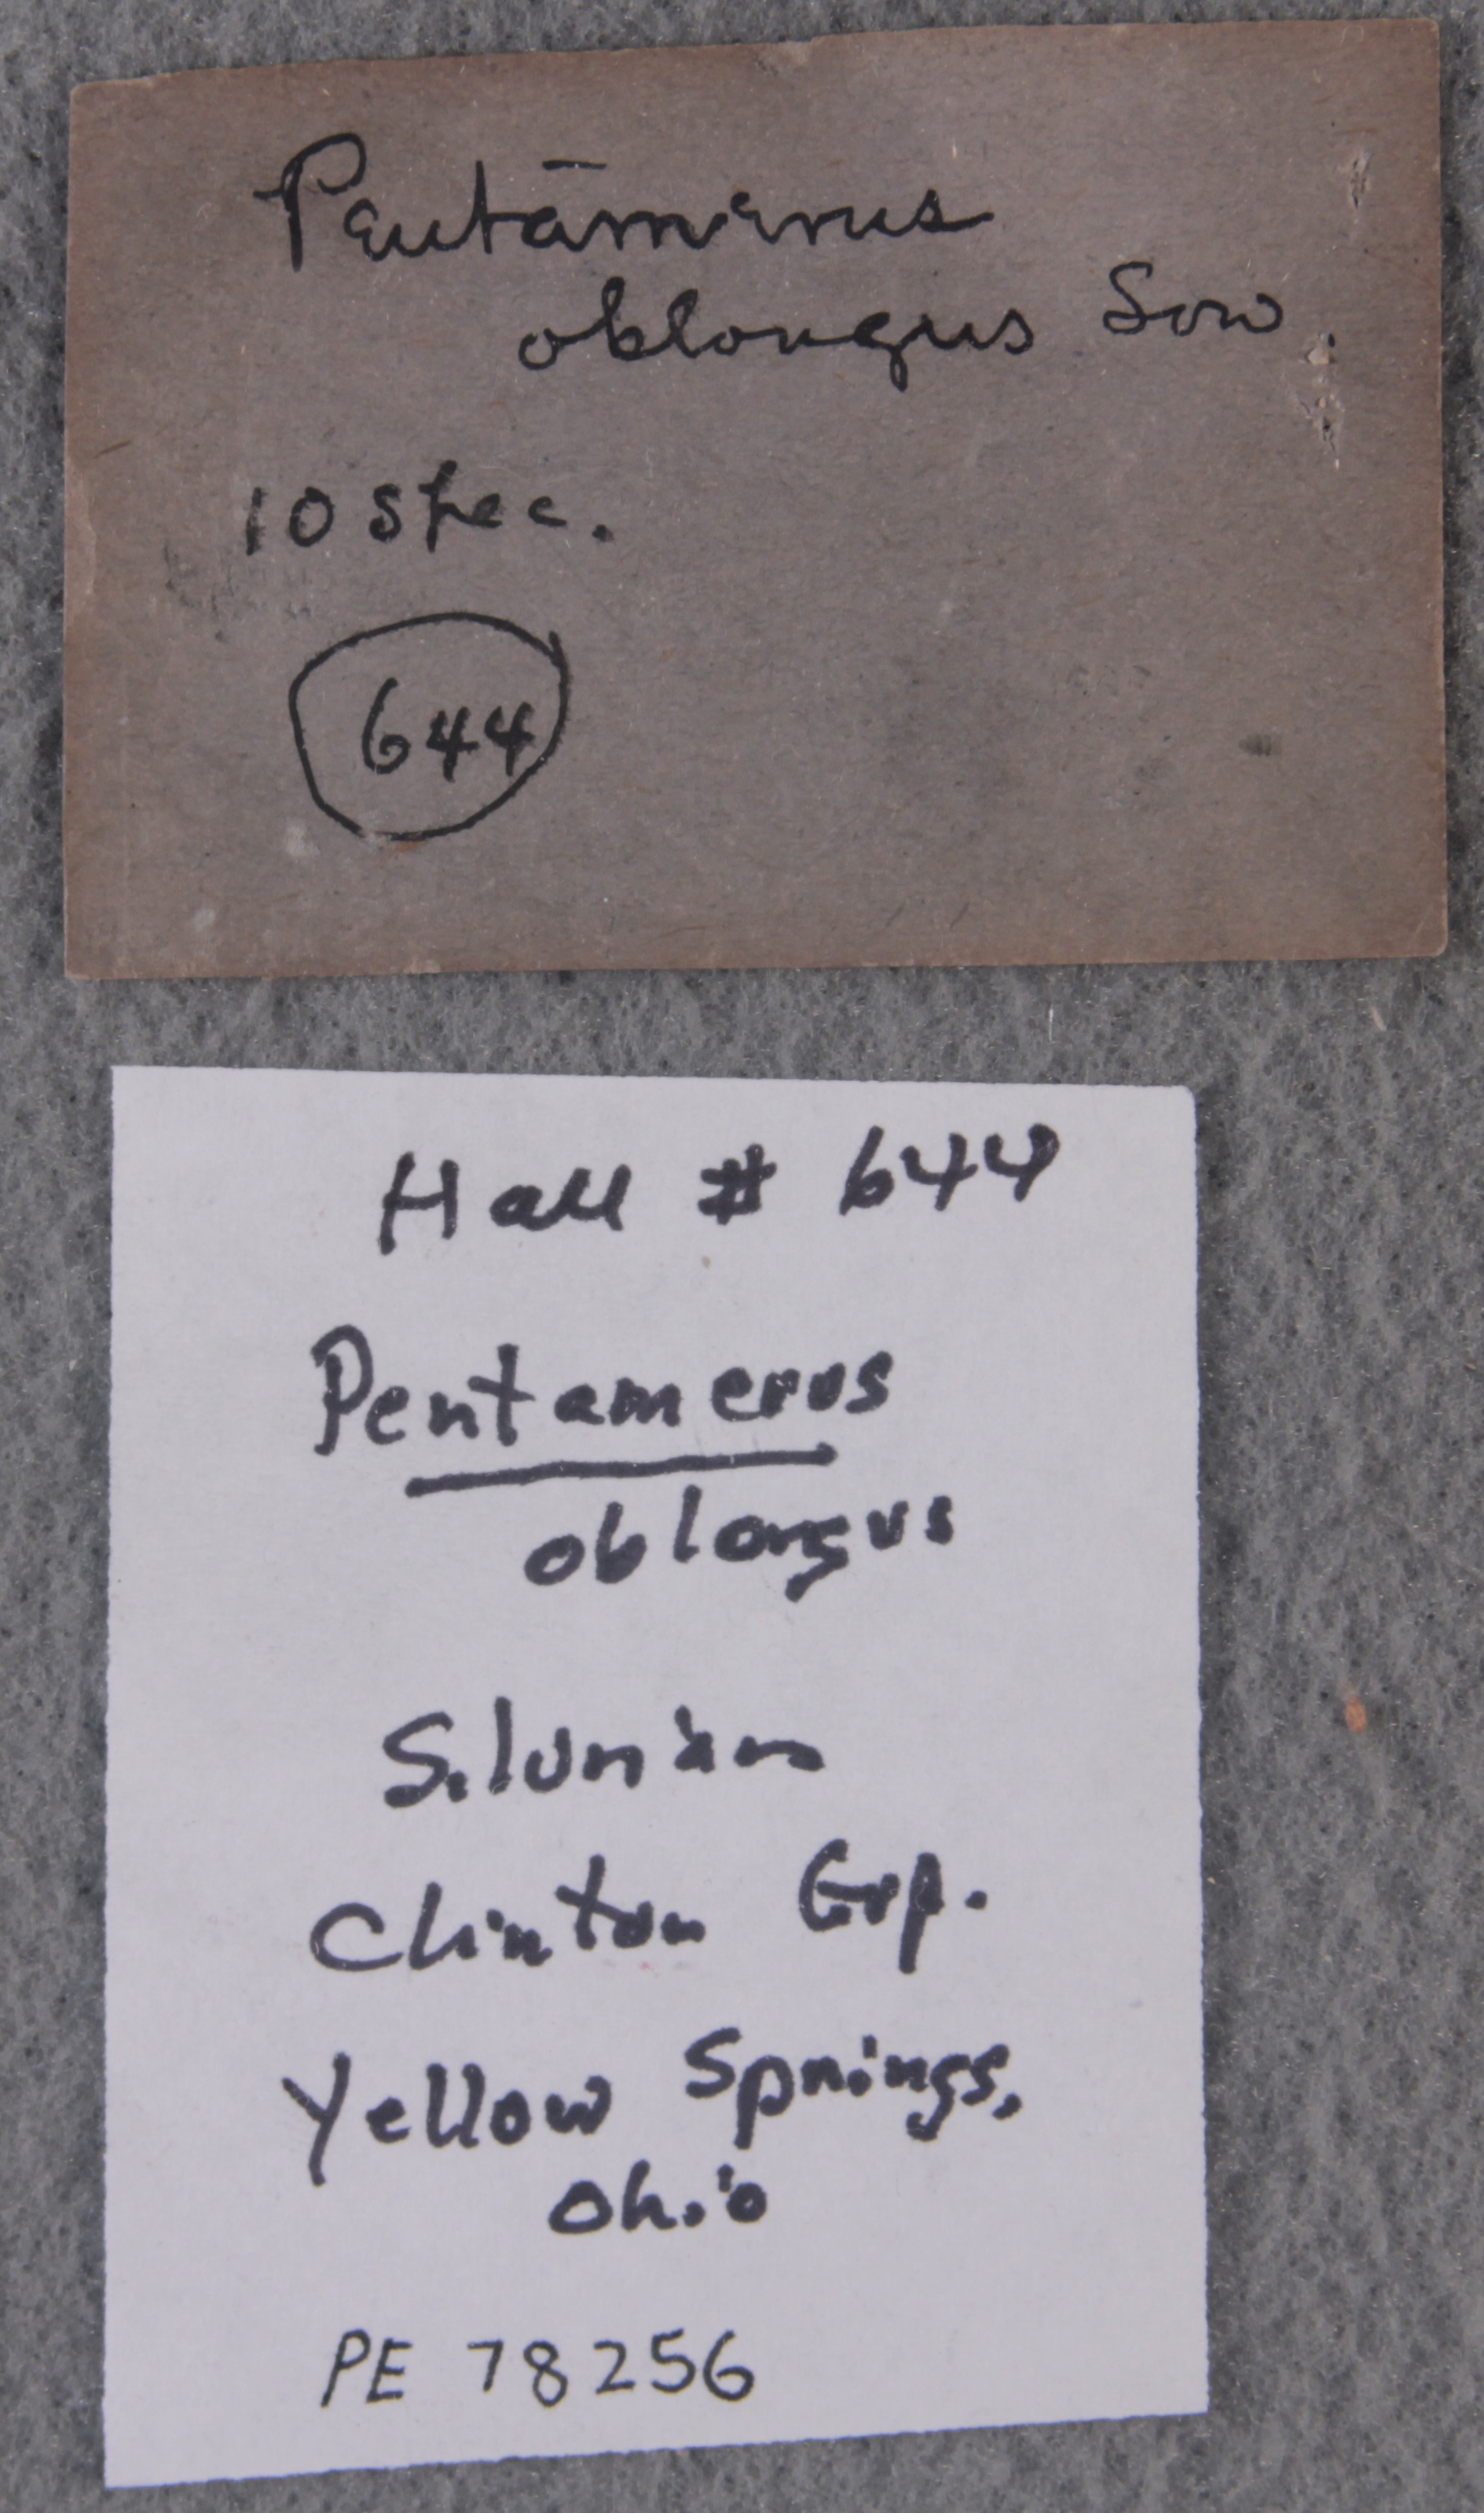 Pentāmerus
oblongus Sow.
10 spec.
644
Hall # 644
Pentamerus
oblongus
Silurian
Clinton Grp.
Yellow Springs,
Ohio
PE 78256